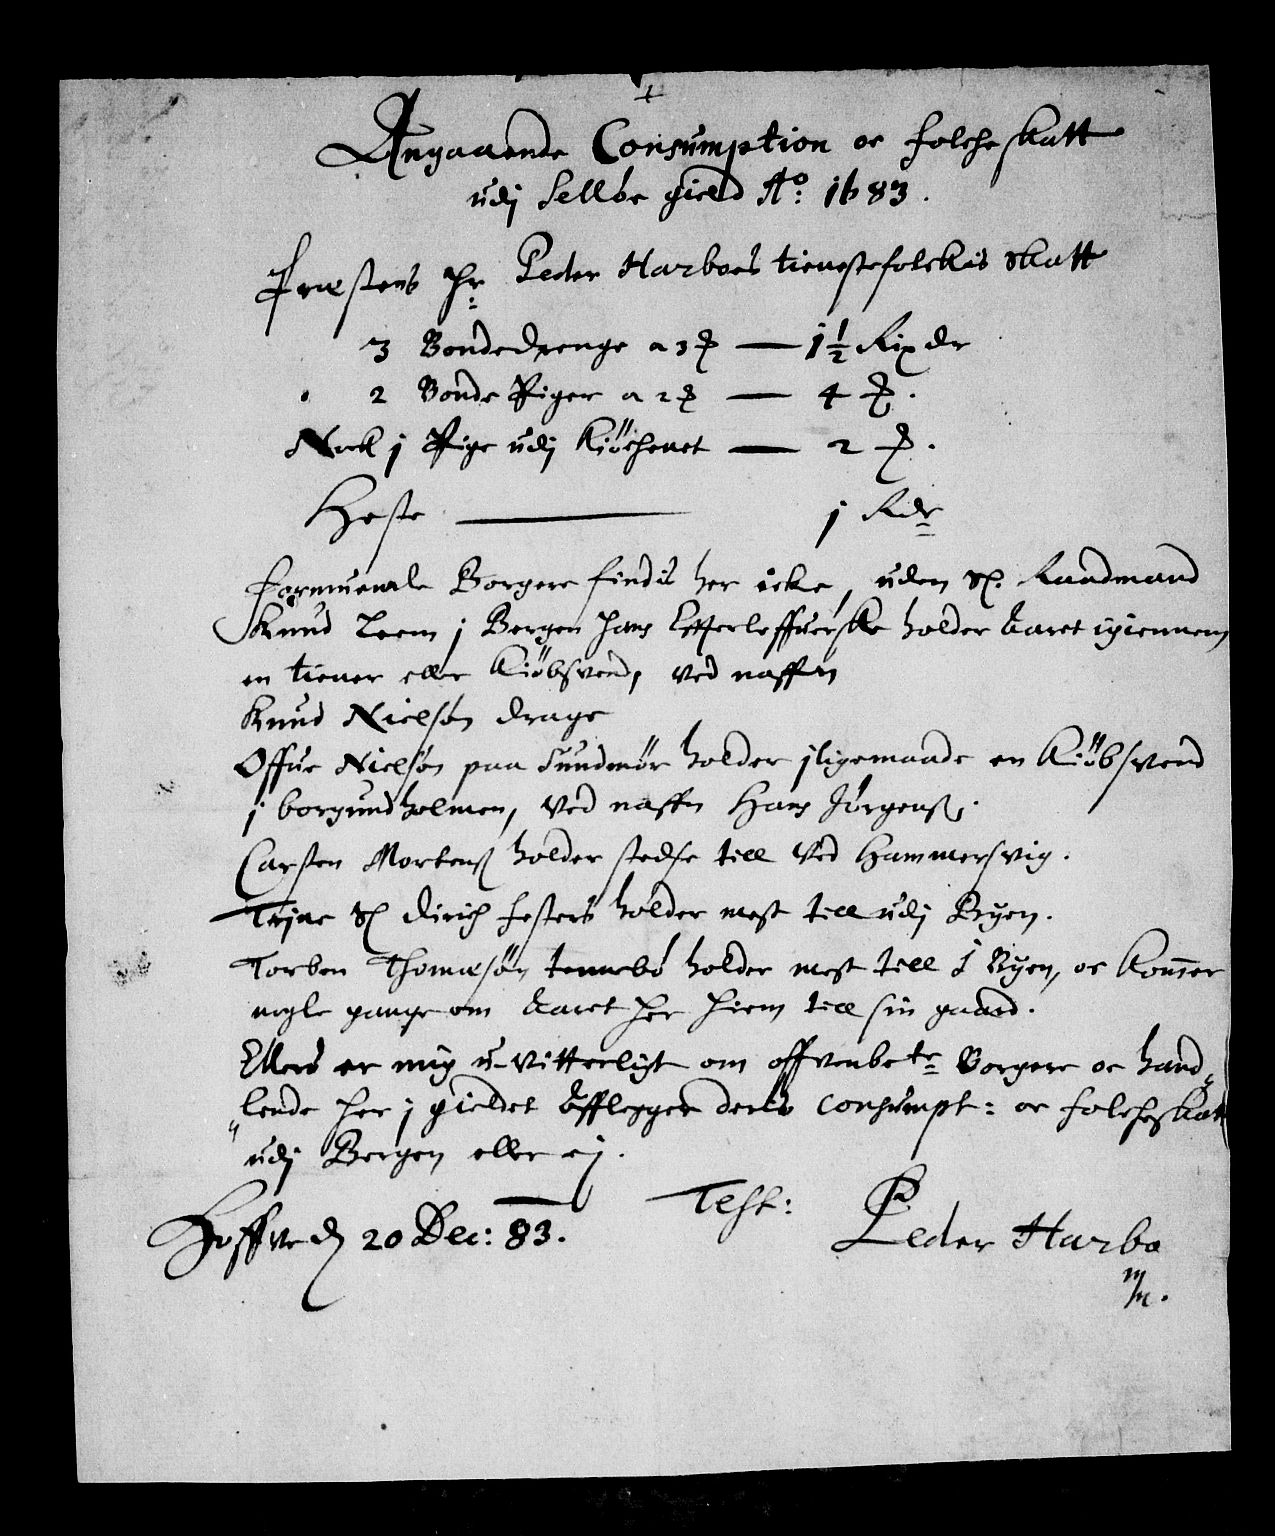 +
Angaaende Consumption oc folcheskatt
udj Sellbe gield Ao: 1683.
Præstens hr Peder Harboes tienestefolckis skatt
3 Bondedrenge a 3 ꝸ — 1½ Rixdr
2 Bonde Piger a 2 ꝸ — 4 ꝸ.
Nock j Pige udj Kiöchenet — 2 ꝸ.
Heste — j Rdr
formuende Borgere findis her icke, uden Sl. Raadmand
Knud Leem j Bergen hans Efterleffuerske holder Aaret igiennem
en tiener eller Kiöbsvend, ved naffn
Knud Nielsøn Drage
Offue Nielsøn paa Sundmör holder jligemaade en Kiöbsvend
j borgundholmen, ved naffn Hans Jørgenß.
Carsten Mortenß holder stedse till ved Hammersvig.
Trine Sl Dirich festers holder mest till udj Byen.
Torben Thomæsøn holder mest till i Byen, oc kom̅er
nogle gange om Aaret her hiem till sin gaard.
Ellers er mig u-vitterligt om offvenbete Borgere oc hand„
„lende her j gieldet afflegger deris consumpt: oc folcheskatt
udj Bergen eller ej.
Hoffve dn 20 Dec: 83. Test: Peder Harbo
m/m.